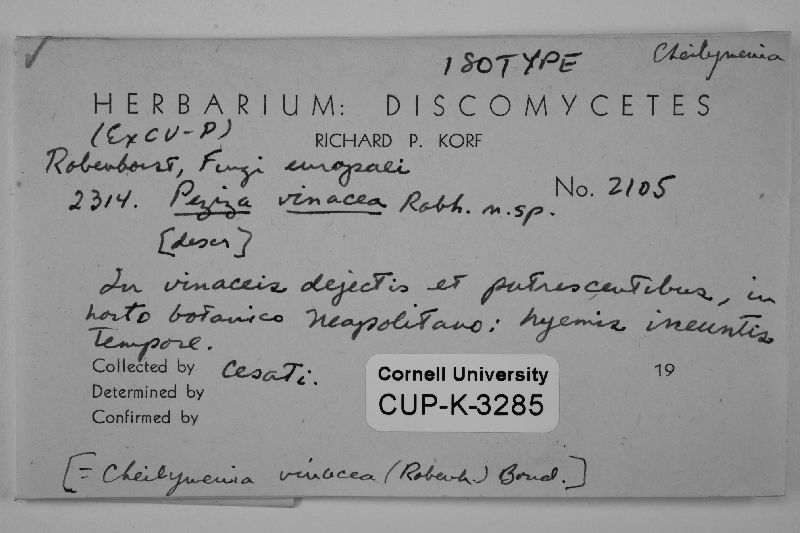 ISOTYPE Cheilymenia
HERBARIUM: DISCOMYCETES
(Ex CU-P) RICHARD P. KORF
Rabenhorst, Fungi europaei
2314. Peziza vinacea Rabh. n.sp. No. 2105
[descr]
In vinaceis dejectis et putrescentibus, in
horto botanico Neapolitano: hyemis ineuntis
tempore.
Collected by Cesati. 19
Determined by
Confirmed by
Cornell University
CUP-K-3285
[= Cheilymenia vinacea (Rabenh.) Boud.]